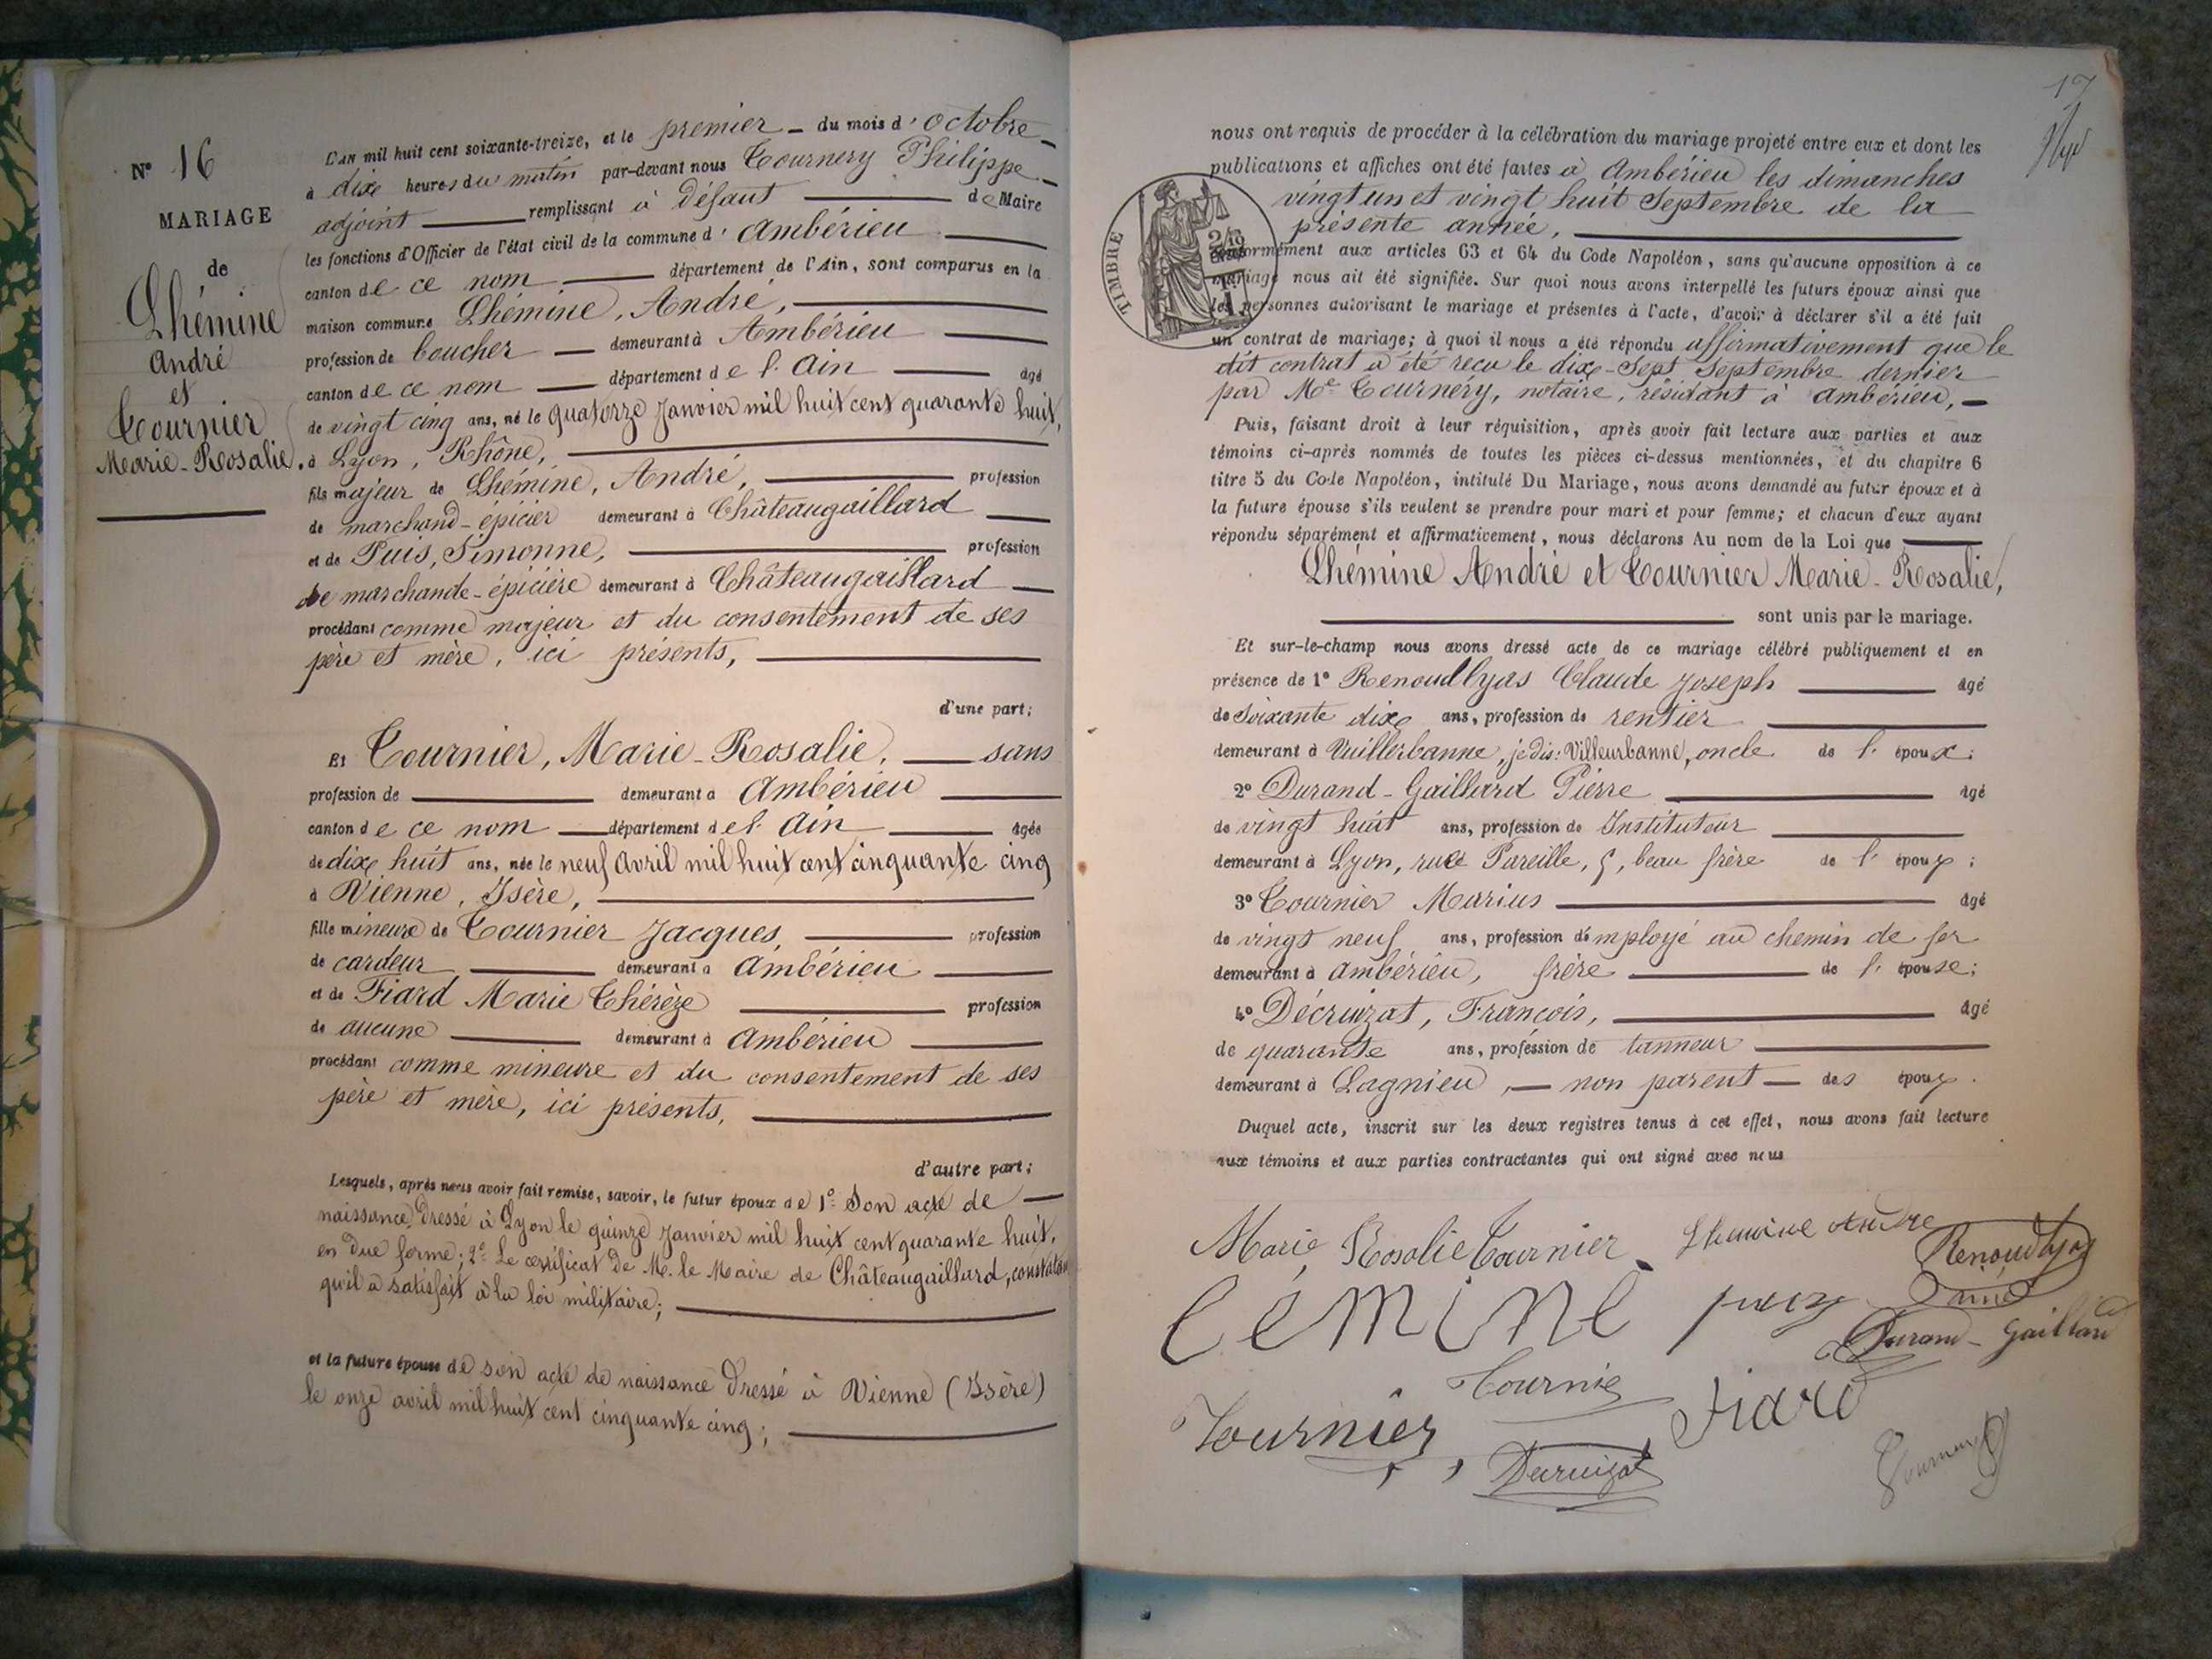 N° 16
MARIAGE
de
Lhémine
André
et
Tournier
Marie-Rosalie.
L'AN mil huit cent soixante-treize, et le premier du mois d'Octobre
à dix heures du matin par-devant nous Tournery Philippe
adjoint remplissant à défaut de Maire
les fonctions d'Officier de l'état civil de la commune d'Ambérieu
canton de ce nom département de l'Ain, sont comparus en la
maison commune Lhémine, André,
profession de boucher demeurant à Ambérieu
canton de ce nom département de l'Ain âgé
de vingt cinq ans, né le quatorze Janvier mil huit cent quarante huit,
à Lyon, Rhône,
fils majeur de Lhémine, André, profession
de marchand-épicier demeurant à Châteaugaillard
et de Puis, Simonne, profession
de marchande-épicière demeurant à Châteaugaillard
procédant comme majeur et du consentement de ses
père et mère, ici présents,
d'une part;
Et Tournier, Marie-Rosalie, sans
profession de demeurant à Ambérieu
canton de ce nom département de l'Ain âgée
de dix huit ans, née le neuf Avril mil huit cent cinquante cinq
à Vienne, Isère,
fille mineure de Tournier Jacques, profession
de cardeur demeurant à Ambérieu
et de Fiard Marie Thérèze profession
de aucune demeurant à Ambérieu
procédant comme mineure et du consentement de ses
père et mère, ici présents,
d'autre part;
Lesquels, après nous avoir fait remise, savoir, le futur époux de 1° Son acte de
naissance dressé à Lyon le quinze Janvier mil huit cent quarante huit,
en due forme; 2° Le certificat de M. le Maire de Châteaugaillard, constatant
qu'il a satisfait à la loi militaire;
et la future épouse de son acte de naissance dressé à Vienne (Isère)
le onze avril mil huit cent cinquante cinq;
17
nous ont requis de procéder à la célébration du mariage projeté entre eux et dont les
publications et affiches ont été faites à Ambérieu les dimanches
vingt un et vingt huit Septembre de la
présente année,
TIMBRE
conformément aux articles 63 et 64 du Code Napoléon, sans qu'aucune opposition à ce
mariage nous ait été signifiée. Sur quoi nous avons interpellé les futurs époux ainsi que
les personnes autorisant le mariage et présentes à l'acte, d'avoir à déclarer s'il a été fait
un contrat de mariage; à quoi il nous a été répondu affirmativement que le
dit contrat a été reçu le dix-sept Septembre dernier
par Me Tournery, notaire, résidant à Ambérieu,
Puis, faisant droit à leur réquisition, après avoir fait lecture aux parties et aux
témoins ci-après nommés de toutes les pièces ci-dessus mentionnées, et du chapitre 6
titre 5 du Code Napoléon, intitulé Du Mariage, nous avons demandé au futur époux et à
la future épouse s'ils veulent se prendre pour mari et pour femme; et chacun d'eux ayant
répondu séparément et affirmativement, nous déclarons Au nom de la Loi que
Lhémine André et Tournier Marie-Rosalie,
sont unis par le mariage.
Et sur-le-champ nous avons dressé acte de ce mariage célébré publiquement et en
présence de 1° Renoud lyas Claude Joseph âgé
de soixante dix ans, profession de rentier
demeurant à Vuillerbanne, je dis: Villeurbanne, oncle de l'époux;
2° Durand-Gaillard Pierre âgé
de vingt huit ans, profession de Instituteur
demeurant à Lyon, rue Pareille, 5, beau frère de l'époux;
3° Tournier Marius âgé
de vingt neuf ans, profession d'employé au chemin de fer
demeurant à Ambérieu, frère de l'épouse;
4° Décruizat, François, âgé
de quarante ans, profession de tanneur
demeurant à Lagnieu, non parent des époux.
Duquel acte, inscrit sur les deux registres tenus à cet effet, nous avons fait lecture
aux témoins et aux parties contractantes qui ont signé avec nous
Marie Rosalie Tournier Lhemine Andre
Renoud lyas
ainé
lémine puis
Durand-Gaillard
Tournier
Tournier Fiard
Decruizat
Tournery